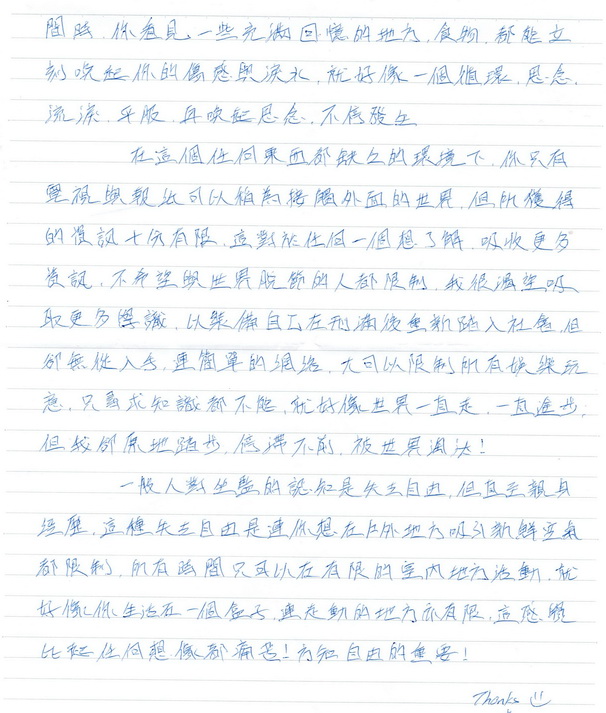 間時, 你看見, 一些充滿回憶的地方, 食物, 都能立
刻喚起你的傷感與淚水, 就好像一個循環, 思念,
流淚, 平服, 再喚起思念, 不停發生
在這個任何東西都缺乏的環境下, 你只有
電視與報紙可以稍為接觸外面的世界, 但所獲得
的資訊十分有限, 這對於任何一個想了解, 吸收更多
資訊, 不希望與世界脫節的人都限制, 我很渴望吸
取更多學識, 以裝備自己在刑滿後重新踏入社會, 但
卻無從入手, 連簡單的網絡, 大可以限制所有娛樂玩
意, 只尋求知識都不能, 就好像世界一直走, 一直進步,
但我卻原地踏步, 停滯不前, 被世界淘汰!
一般人對坐監的認知是失去自由, 但直至親身
經歷, 這種失去自由是連你想在戶外地方吸引新鮮空氣
都限制, 所有時間只可以在有限的室內地方活動, 就
好像你生活在一個盒子, 連走動的地方亦有限, 這感覺
比起任何想像都痛苦! 方知自由的重要!
Thanks